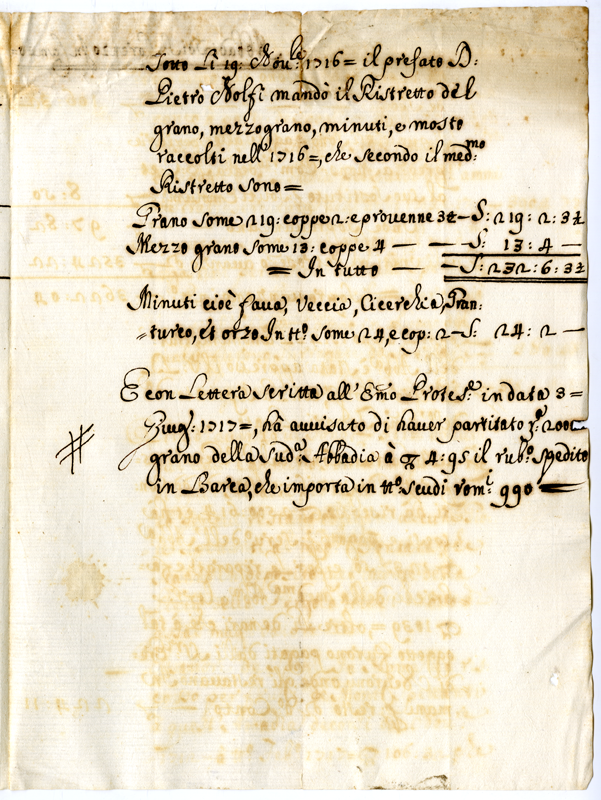 Sotto Li 19: Nou.le 1716= il prefato D:
Pietro Nolfi mandò il Ristretto del
grano, mezzograno, minuti, e mosto
raccolti nell' 1716=, che secondo il med:mo
Ristretto sono=
Grano some 219: coppe 2: e prouenne 3½ — S: 219: 2: 3½
Mezzo grano some 13: coppe 4 — — S: 13: 4 —
= In tutto — — S: 232: 6: 3½
Minuti cioè faua, Veccia, Cicerchia, Gran:
=turco, et orzo In tt.o some 24, e cop: 2 — S: 24: 2 —
E con Lettera scritta all' Emo Protet.e in data 3=
Giug.o: 1717=, hà auuisato di hauer partitato r.a 200
grano della Sud.a Abbadia à 4:95 il rub.o spedito
in Barca, che importa in tt.o scudi rom.i 990 —